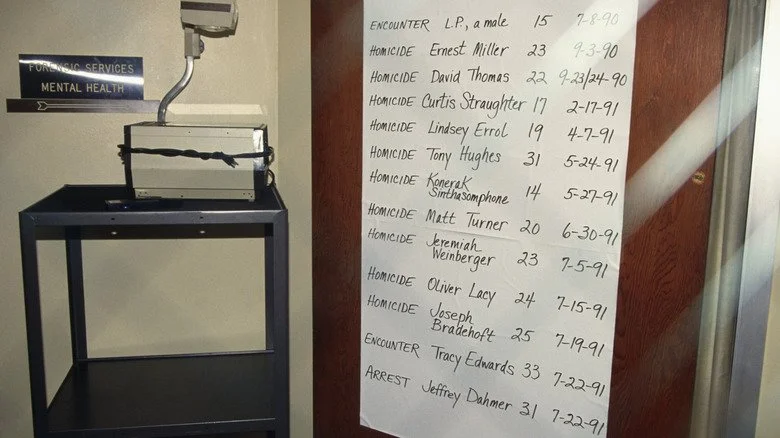 FORENSIC SERVICES
MENTAL HEALTH
ENCOUNTER L.P., a male 15 7-8-90
HOMICIDE Ernest Miller 23 9-3-90
HOMICIDE David Thomas 22 9-23/24-90
HOMICIDE Curtis Straughter 17 2-17-91
HOMICIDE Lindsey Errol 19 4-7-91
HOMICIDE Tony Hughes 31 5-24-91
HOMICIDE Konerak
Sinthasomphone 14 5-27-91
HOMICIDE Matt Turner 20 6-30-91
HOMICIDE Jeremiah
Weinberger 23 7-5-91
HOMICIDE Oliver Lacy 24 7-15-91
HOMICIDE Joseph
Bradehoft 25 7-19-91
ENCOUNTER Tracy Edwards 33 7-22-91
ARREST Jeffrey Dahmer 31 7-22-91